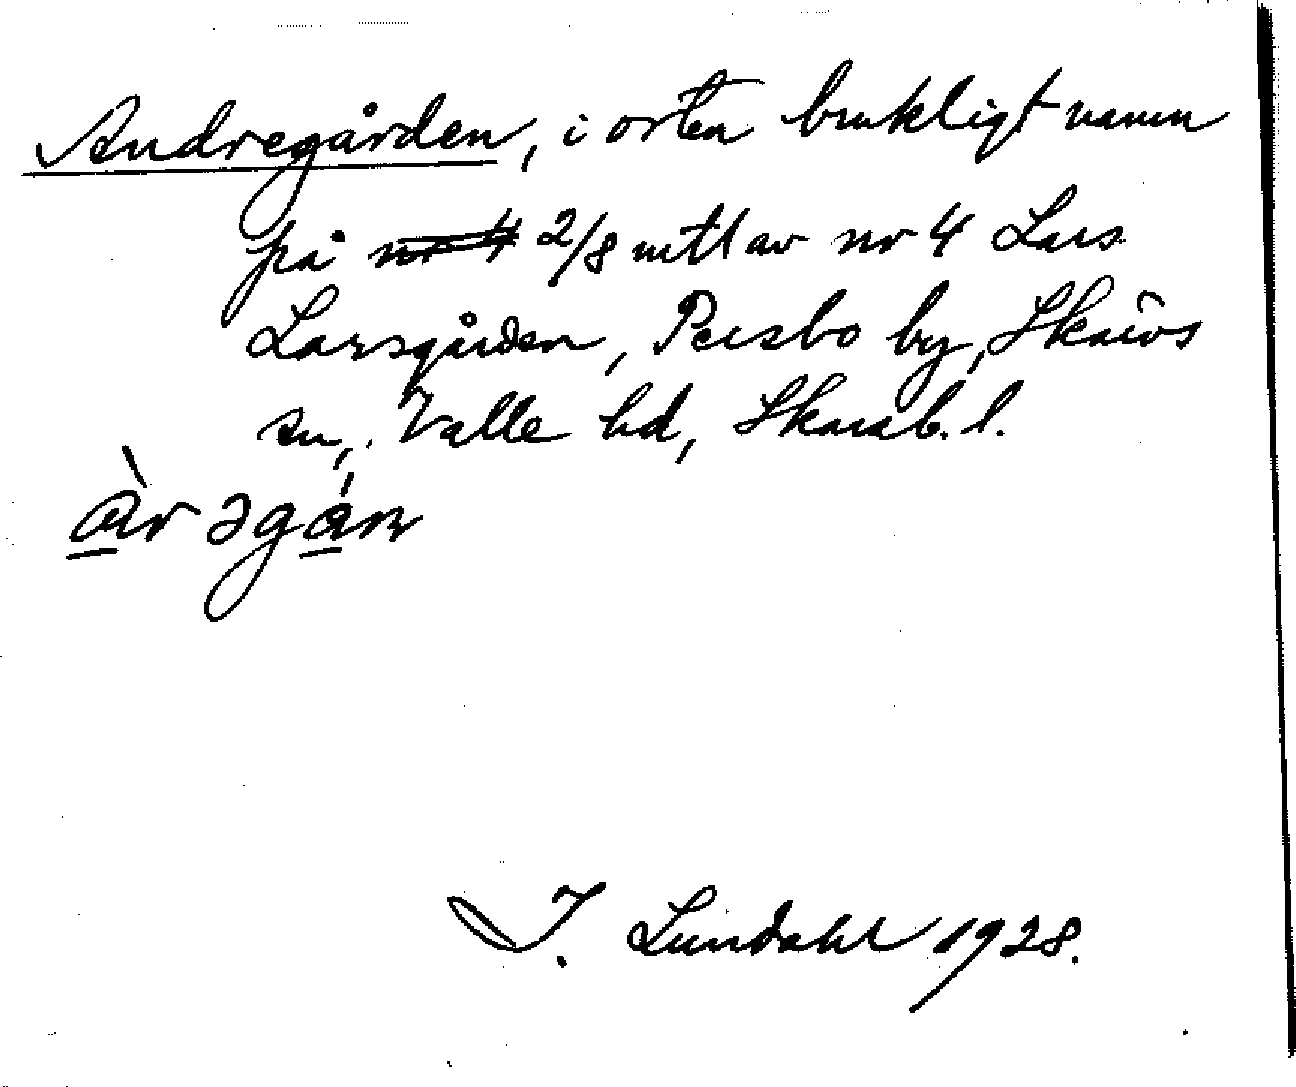 Andregården, i orten brukligt namn
på nr 4 2/8 mtl av nr 4 Lars
Larsgården, Persbo by, Skärvs
sn, Valle hd, Skarab. l.
I. Lundahl 1928.